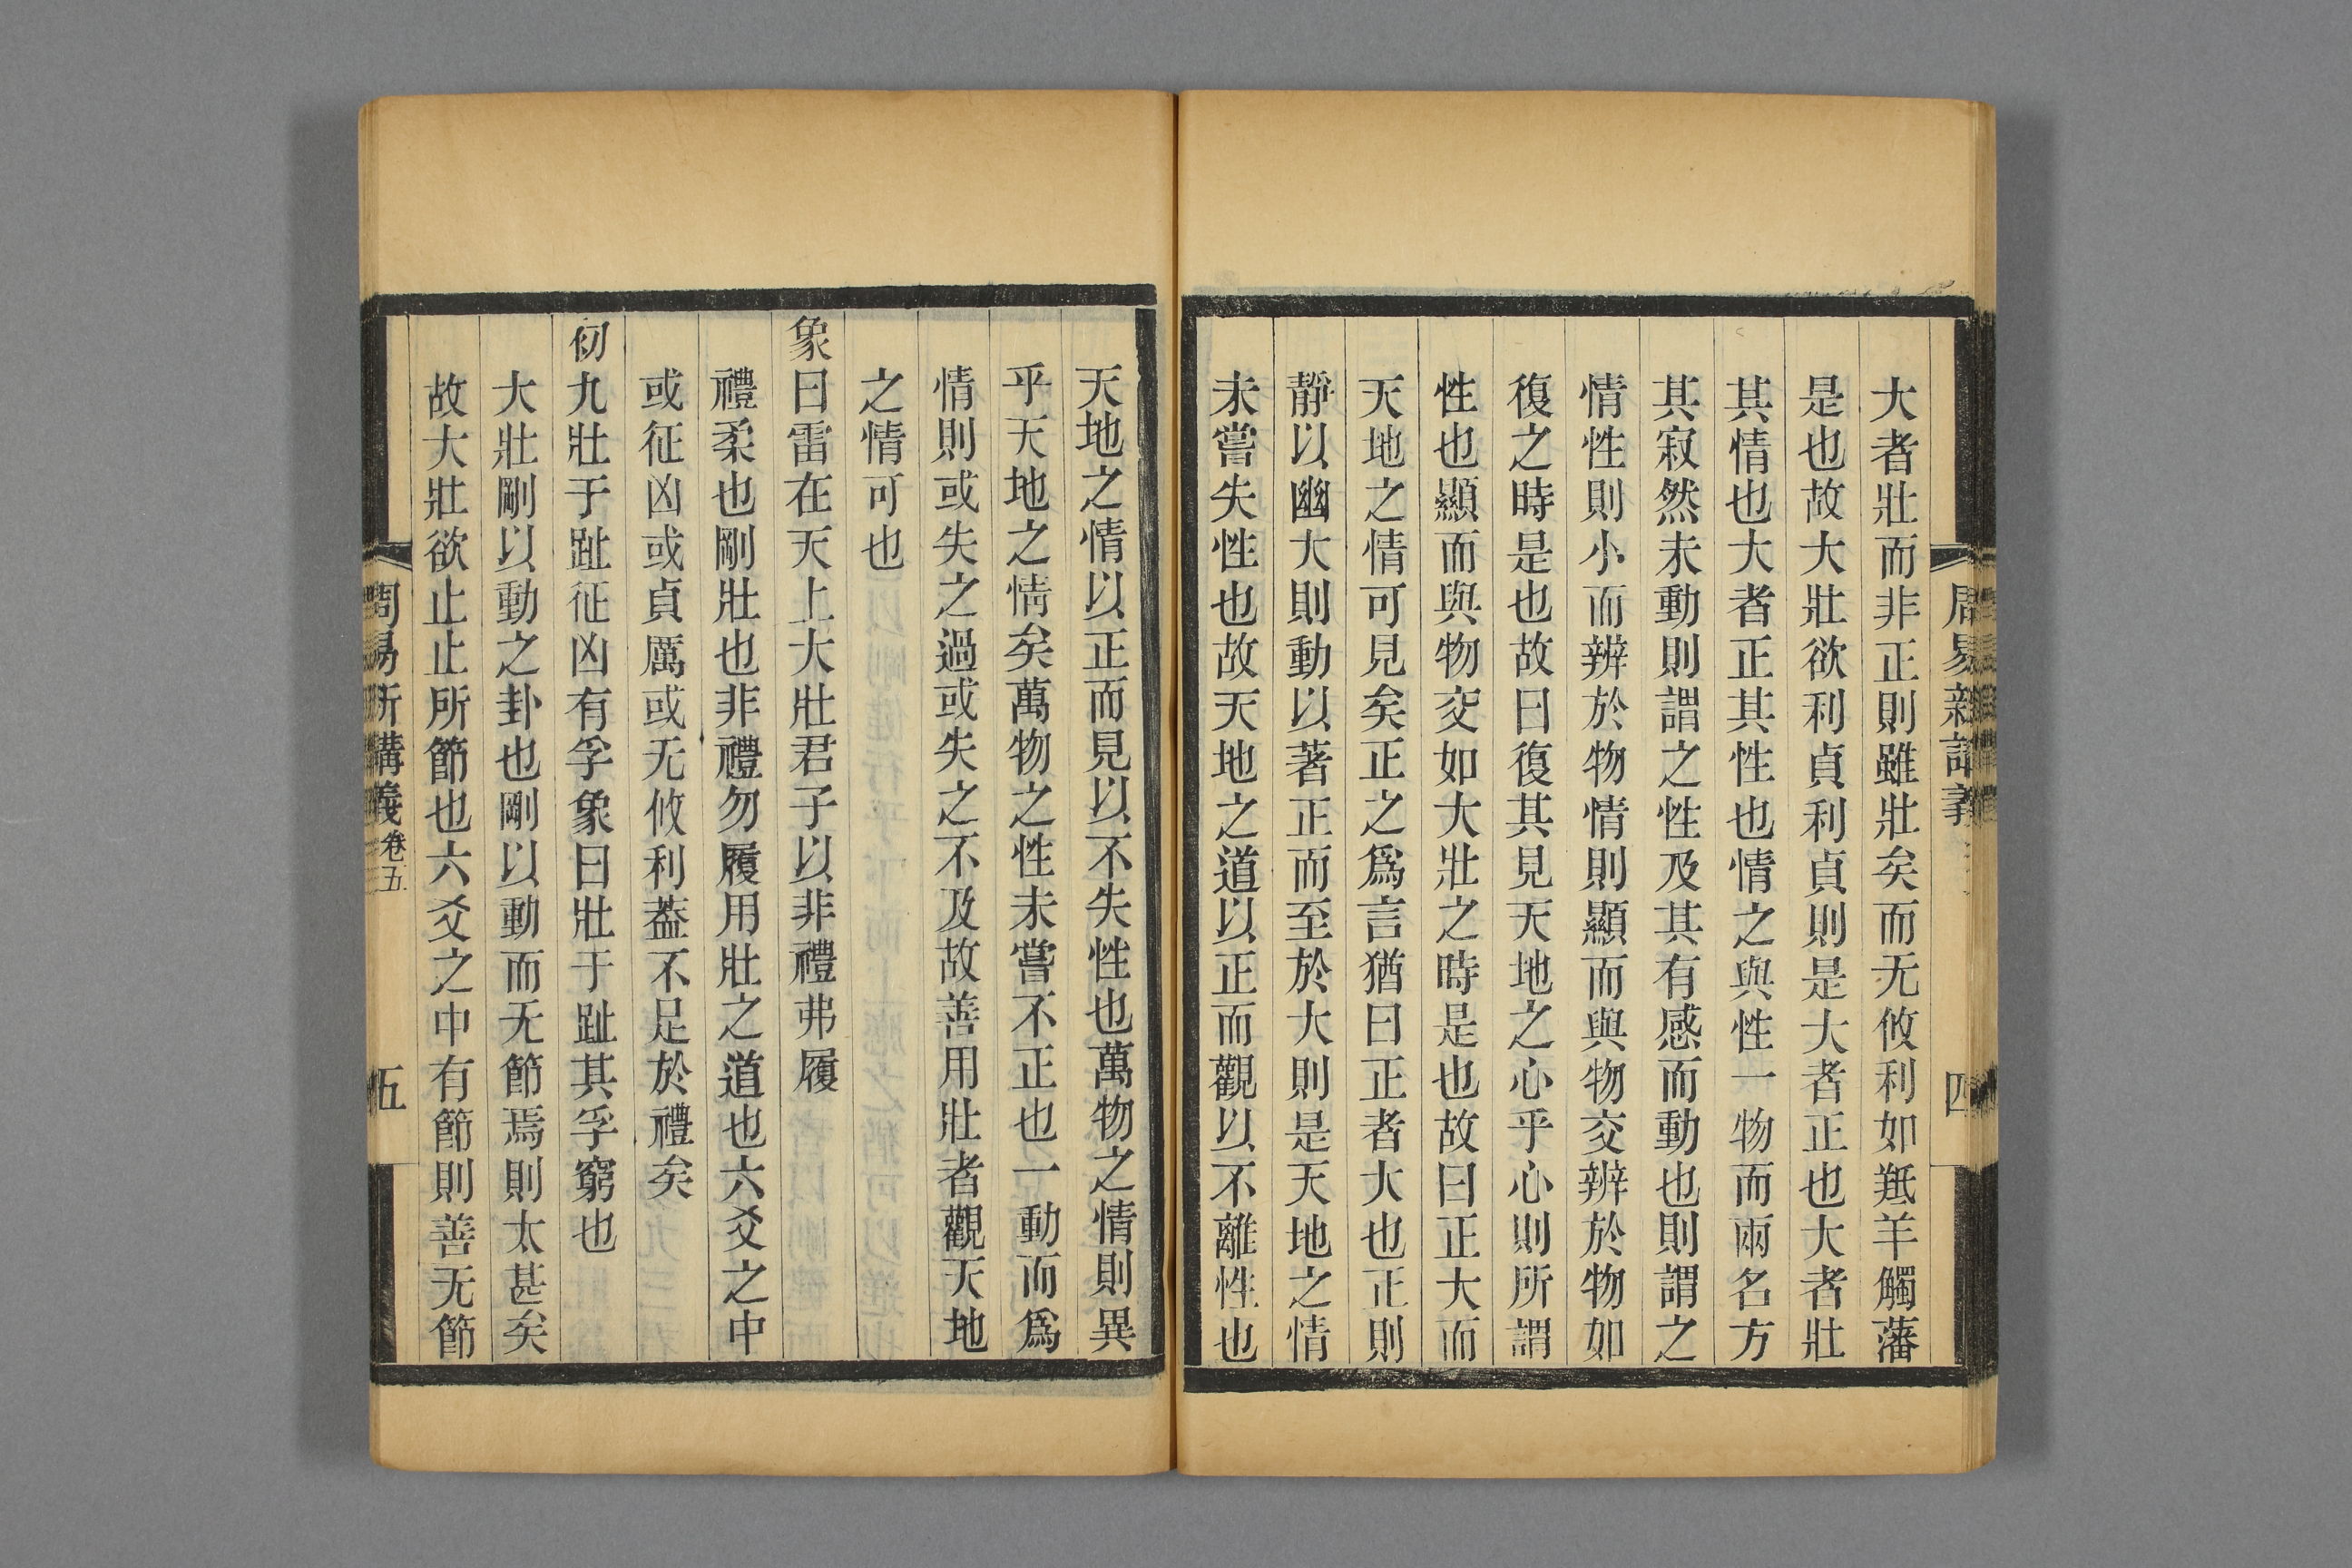 周易新講義
四
大者壯而非正則雖壯矣而无攸利如羝羊觸藩
是也故大壯欲利貞利貞則是大者正也大者壯
其情也大者正其性也情之與性一物而兩名方
其寂然未動則謂之性及其有感而動也則謂之
情性則小而辨於物情則顯而與物交辨於物如
復之時是也故曰復其見天地之心乎心則所謂
性也顯而與物交如大壯之時是也故曰正大而
天地之情可見矣正之爲言猶曰正者大也正則
靜以幽大則動以著正而至於大則是天地之情
未嘗失性也故天地之道以正而觀以不離性也
天地之情以正而見以不失性也萬物之情則異
乎天地之情矣萬物之性未嘗不正也一動而爲
情則或失之過或失之不及故善用壯者觀天地
之情可也
象曰雷在天上大壯君子以非禮弗履
禮柔也剛壯也非禮勿履用壯之道也六爻之中
或征凶或貞厲或无攸利葢不足於禮矣
初九壯于趾征凶有孚象曰壯于趾其孚窮也
大壯剛以動之卦也剛以動而无節焉則太甚矣
故大壯欲止止所節也六爻之中有節則善无節
周易新講義卷五
五